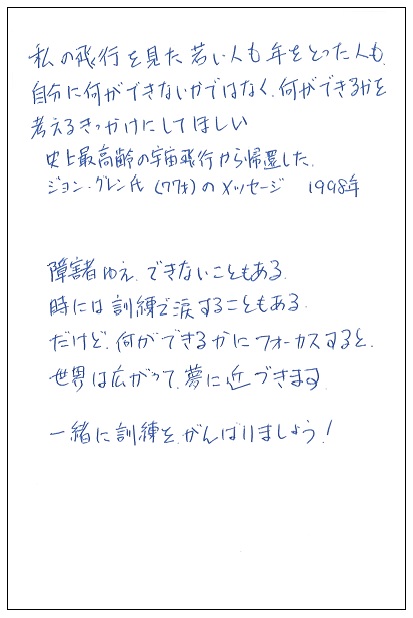 私の飛行を見た若い人も年をとった人も、
自分に何ができないかではなく、何ができるかを
考えるきっかけにしてほしい
史上最高齢の宇宙飛行から帰還した、
ジョン・グレン氏(77才)のメッセージ 1998年
障害者ゆえ、できないこともある、
時には訓練で涙することもある
だけど、何ができるかにフォーカスすると、
世界は広がって、夢に近づきます
一緒に訓練を、がんばりましょう!